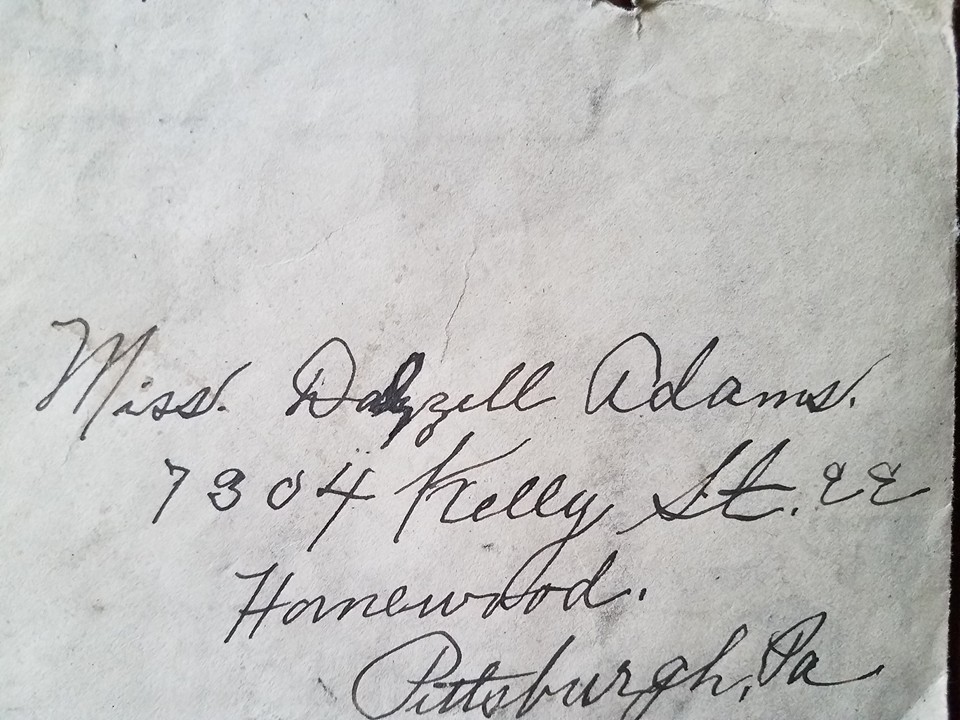 Miss. Dalyzell Adams.
7304 Kelly St. EE
Homewood.
Pittsburgh, Pa